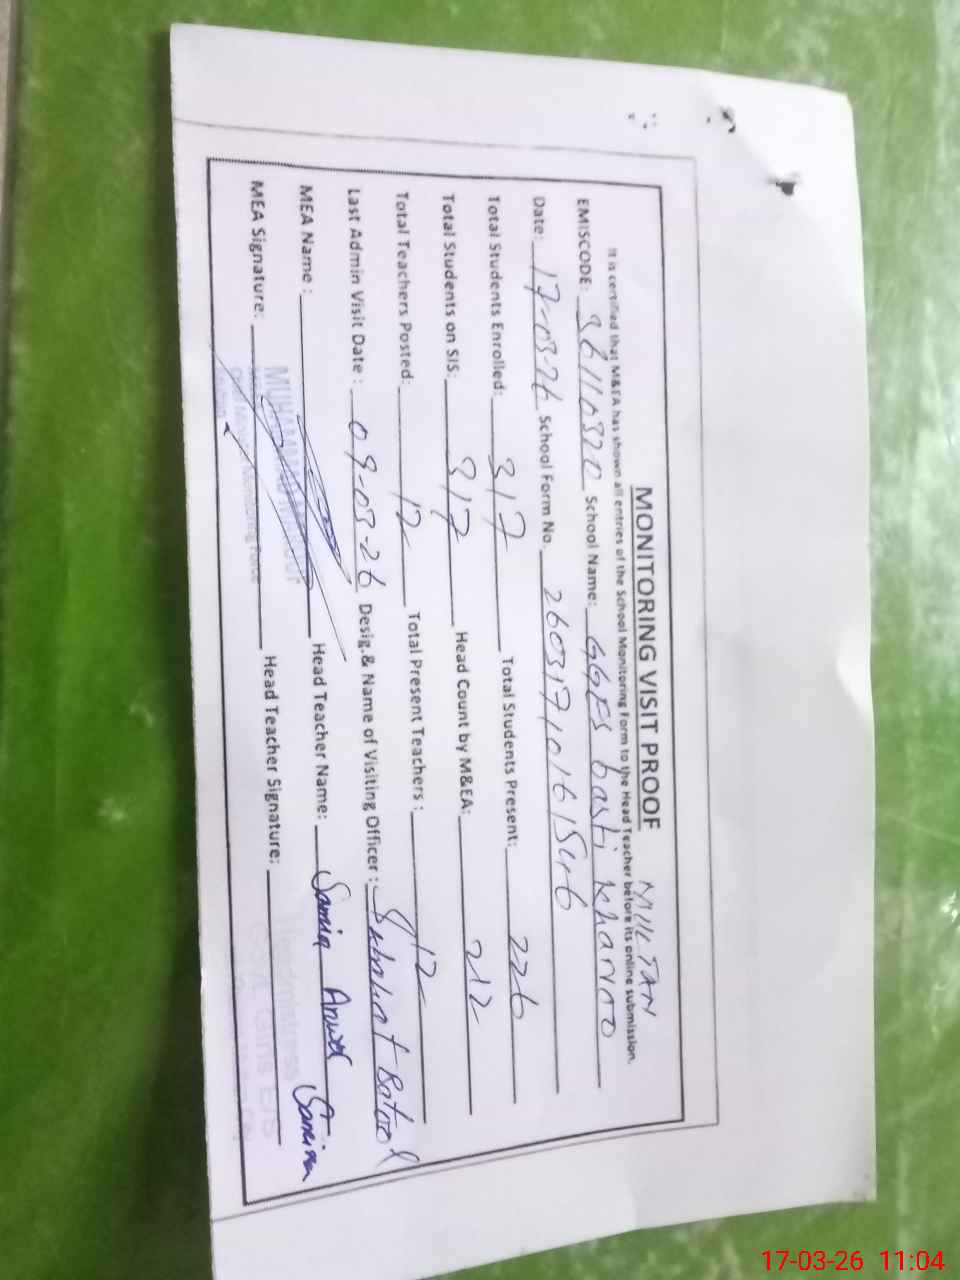 MONITORING VISIT PROOF MULTAN
It is certified that M&EA has shown all entries of the School Monitoring Form to the Head Teacher before its online submission.
EMISCODE: 36110320 School Name: GGES basti Kharino
Date: 17-03-26 School Form No. 260317101615446
Total Students Enrolled: 317 Total Students Present: 226
Total Students on SIS: 317 Head Count by M&EA: 212
Total Teachers Posted: 12 Total Present Teachers: 12
Last Admin Visit Date: 09-03-26 Desig.& Name of Visiting Officer: Batool
MEA Name: Head Teacher Name: Samia
MEA Signature: Head Teacher Signature:
MUHAMMAD
Headmistress
Girls E/S
17-03-26 11:04